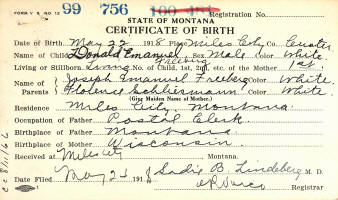 FORM V S NO. 12 99 756 Registration No.
STATE OF MONTANA
CERTIFICATE OF BIRTH
Date of Birth May 22 1918 Place Miles City Co. Custer
Name of Child Donald Emanuel Freeberg Sex Male Color White
Living or Stillborn Living No. of Child, 1st, 2nd, etc. of the Mother 1st
Name of Parents Joseph Emanuel Freeberg Color White
Florence Schliermann Color White
(Give Maiden Name of Mother.)
Residence Miles City, Montana
Occupation of Father Postal Clerk
Birthplace of Father Montana
Birthplace of Mother Wisconsin
Received at Miles City Montana.
Date May 1918 Sadie B. Lindeberg M. D.
Registrar